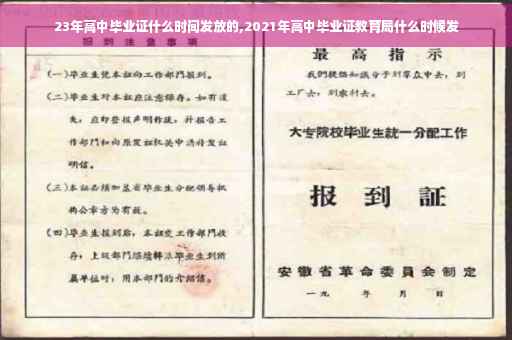 23年高中毕业证什么时间发放的,2021年高中毕业证教育局什么时候发
报到注意事项
(一)毕业生凭本证向工作部门报到。
(二)毕业生对本证应注意保存。如有遗
失,应即登报声明作废,并报告工
作部门和向原发证机关申请补发证
明信。
(三)本证必须加盖省毕业生分配领导机
构公章方为有效。
(四)毕业生报到后,本证交工作部门收
存;上级部门继续转派毕业生到所
属单位时,用本部门的介绍信。
最高指示
我们提倡知识分子到群众中去,到
工厂去,到农村去。
大专院校毕业生統一分配工作
报到証
安徽省革命委員会制定
一九 年 月 日